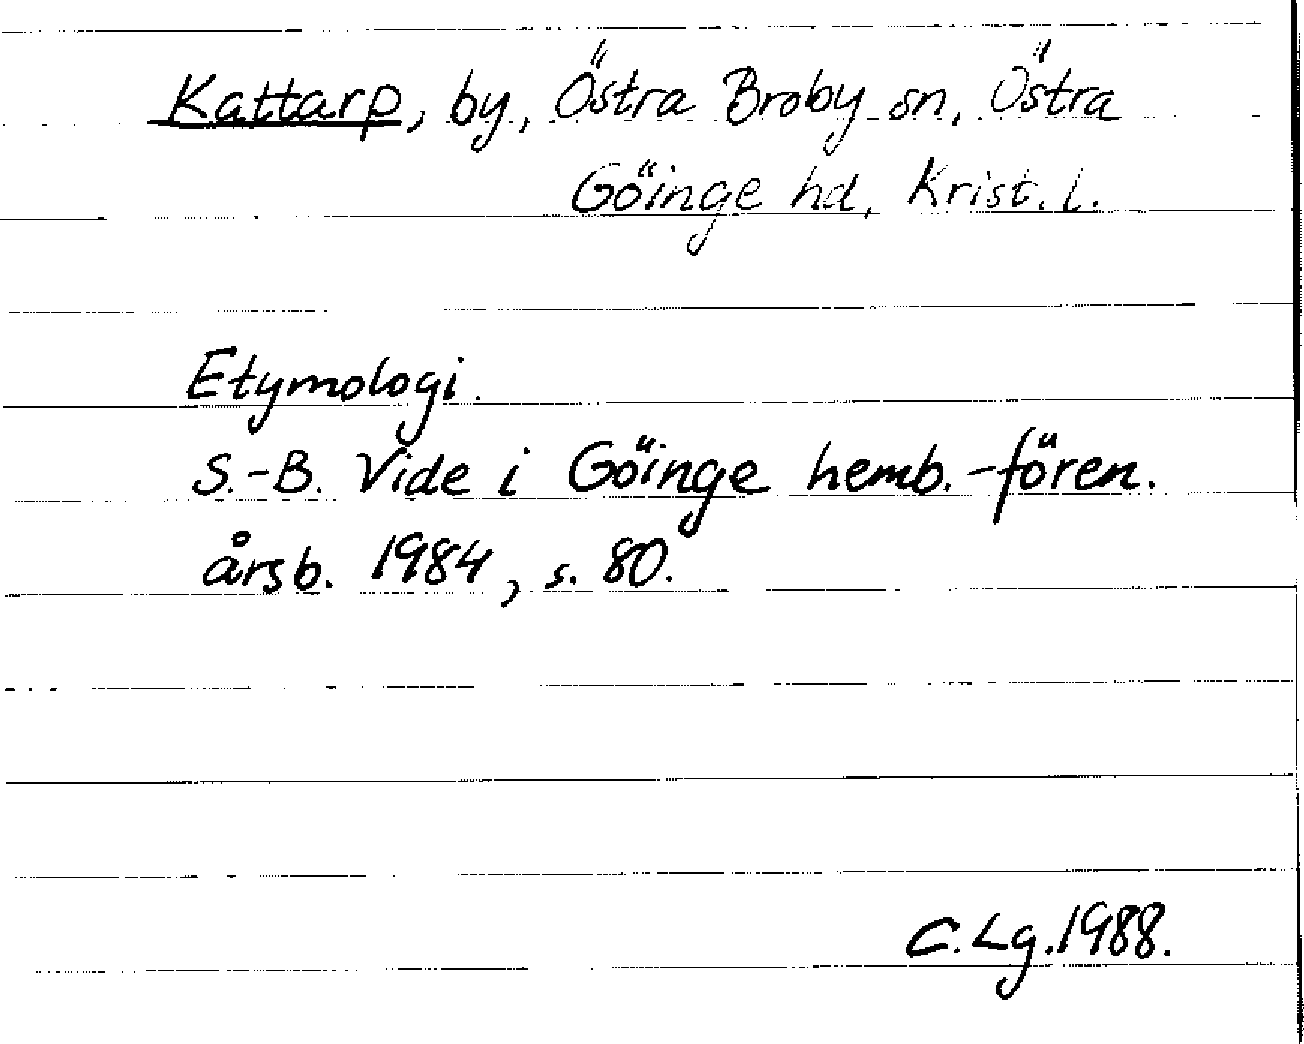 Kattarp, by, Östra Broby sn, Östra
Göinge hd, Krist. l.
Etymologi.
S.-B. Vide i Göinge hemb.-fören.
årsb. 1984, s. 80.
C.Lg.1988.